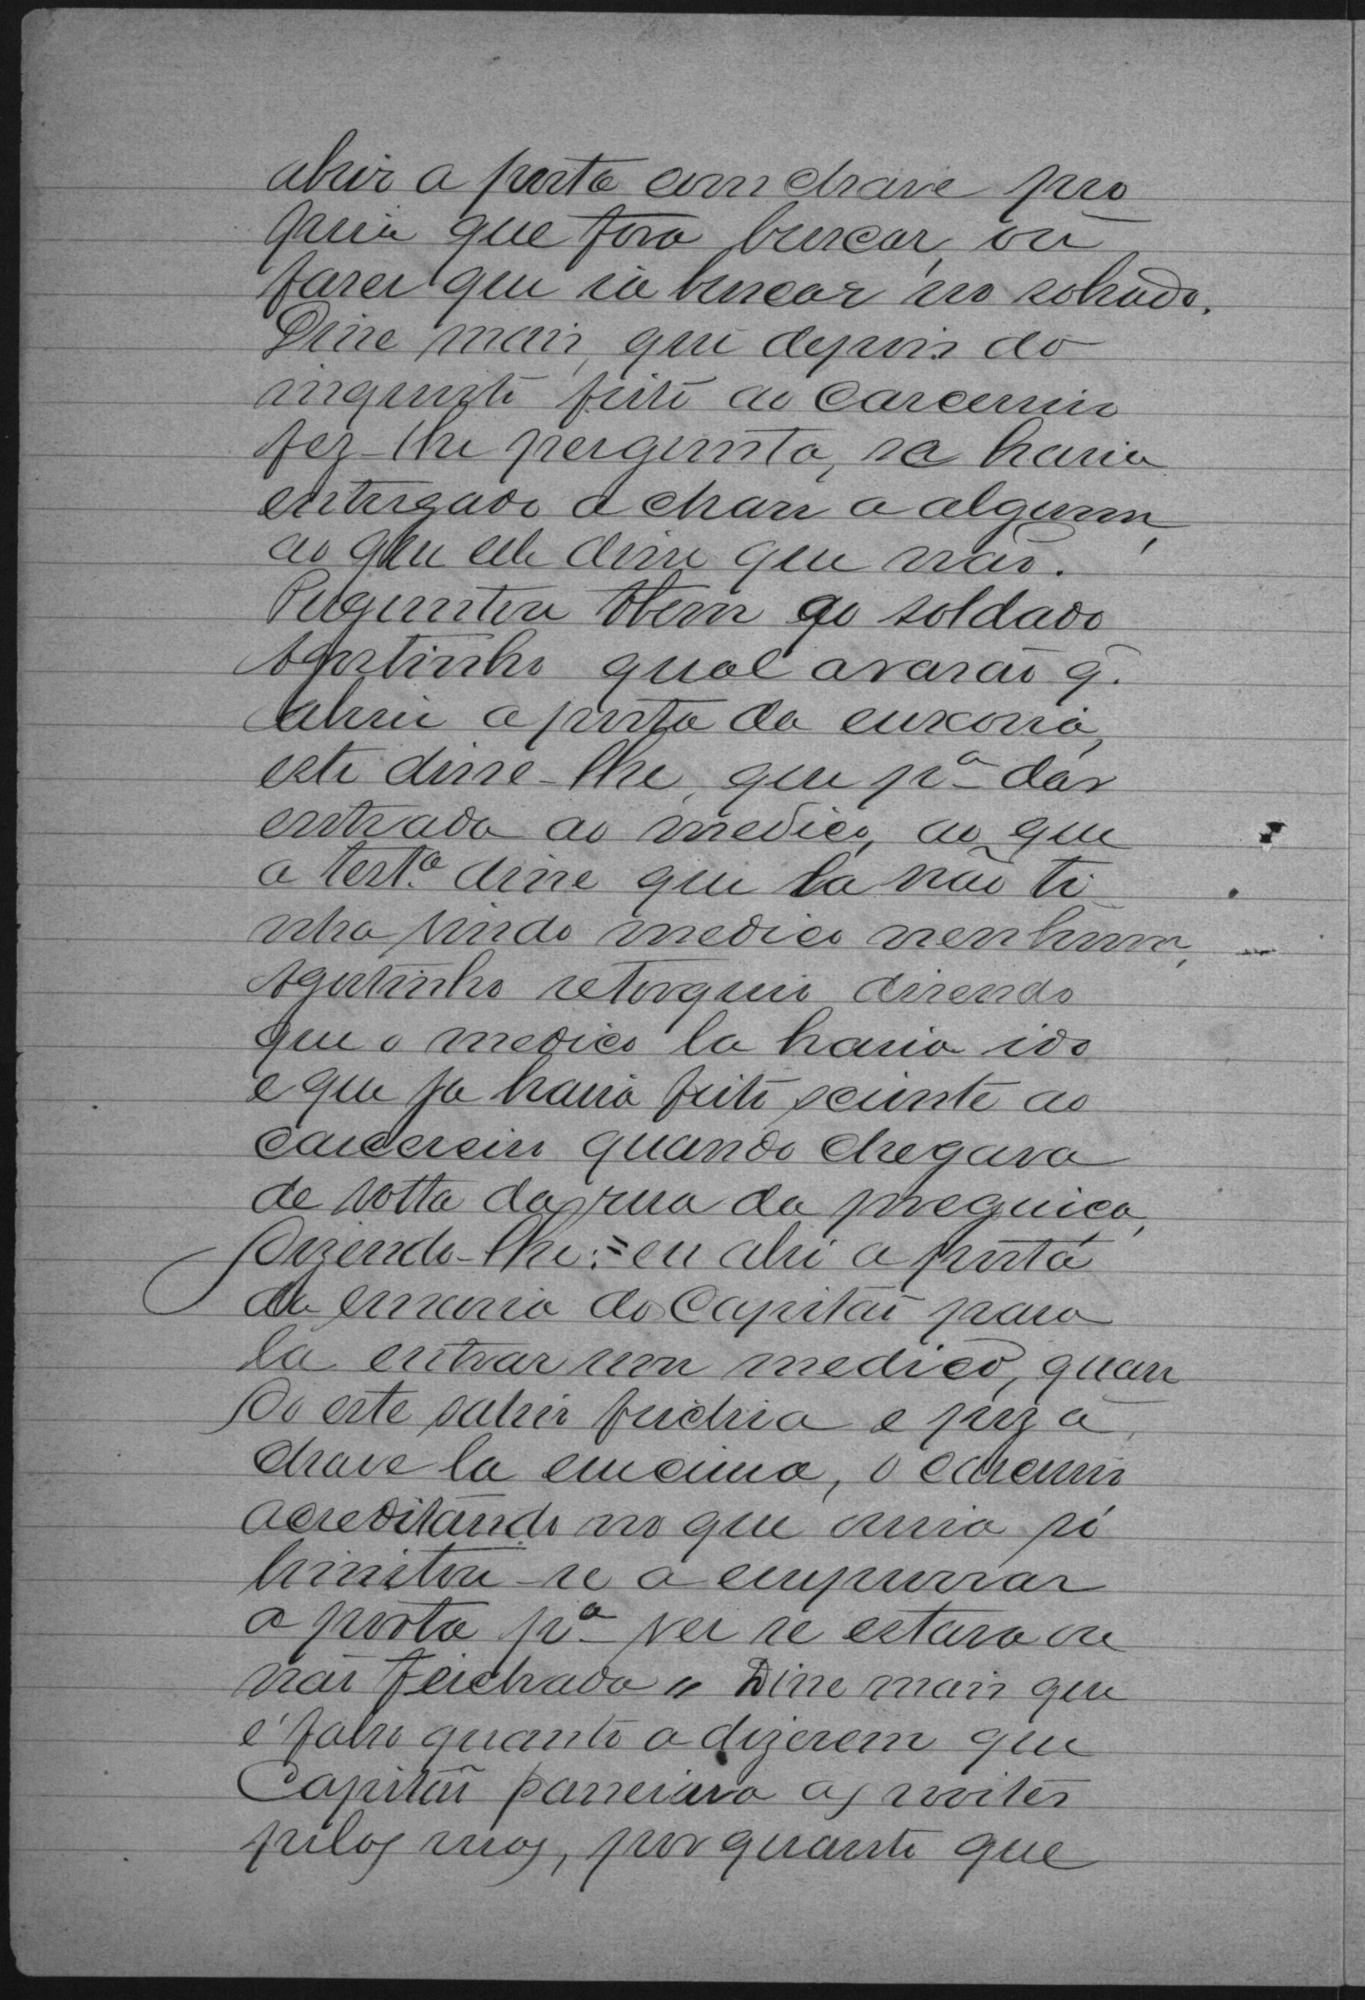 abrir a porta com chave pro
pria que fora buscar, ou
fazer que ia buscar no sobrado.
Disse mais, que depois do
inquerito feito ao Carcereiro
fez-lhe pergunta, se havia
entregado a chave a alguem,
ao que elle disse que não.
Preguntou tbem ao soldado
Agostinho qual a rasão q.
abriu a porta da enxovia,
este disse-lhe, que pª dar
entrada ao medico, ao que
a testª disse que la não ti-
nha vindo medico nenhum,
Agostinho retorquiu disendo
que o medico la havia ido
e que ja havia feito sciente ao
carcereiro quando chegava
de volta da rua da preguiça,
Dizendo-lhe: = eu abri a porta
da enxovia do Capitão para
la entrar um medico, quan
do este sahir feichia e puz a
chave la em cima, o carcereiro
acreditando no que ouvia só
limitou-se a empurrar
a porta pª ver se estava ou
não feichada " Disse mais que
é falso quanto a dizerem que
Capitão passeiava as noites
pelas ruas, por quanto que